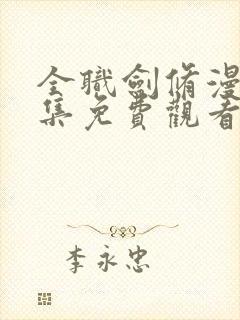 全職劍脩漫
集免費觀看
李永忠